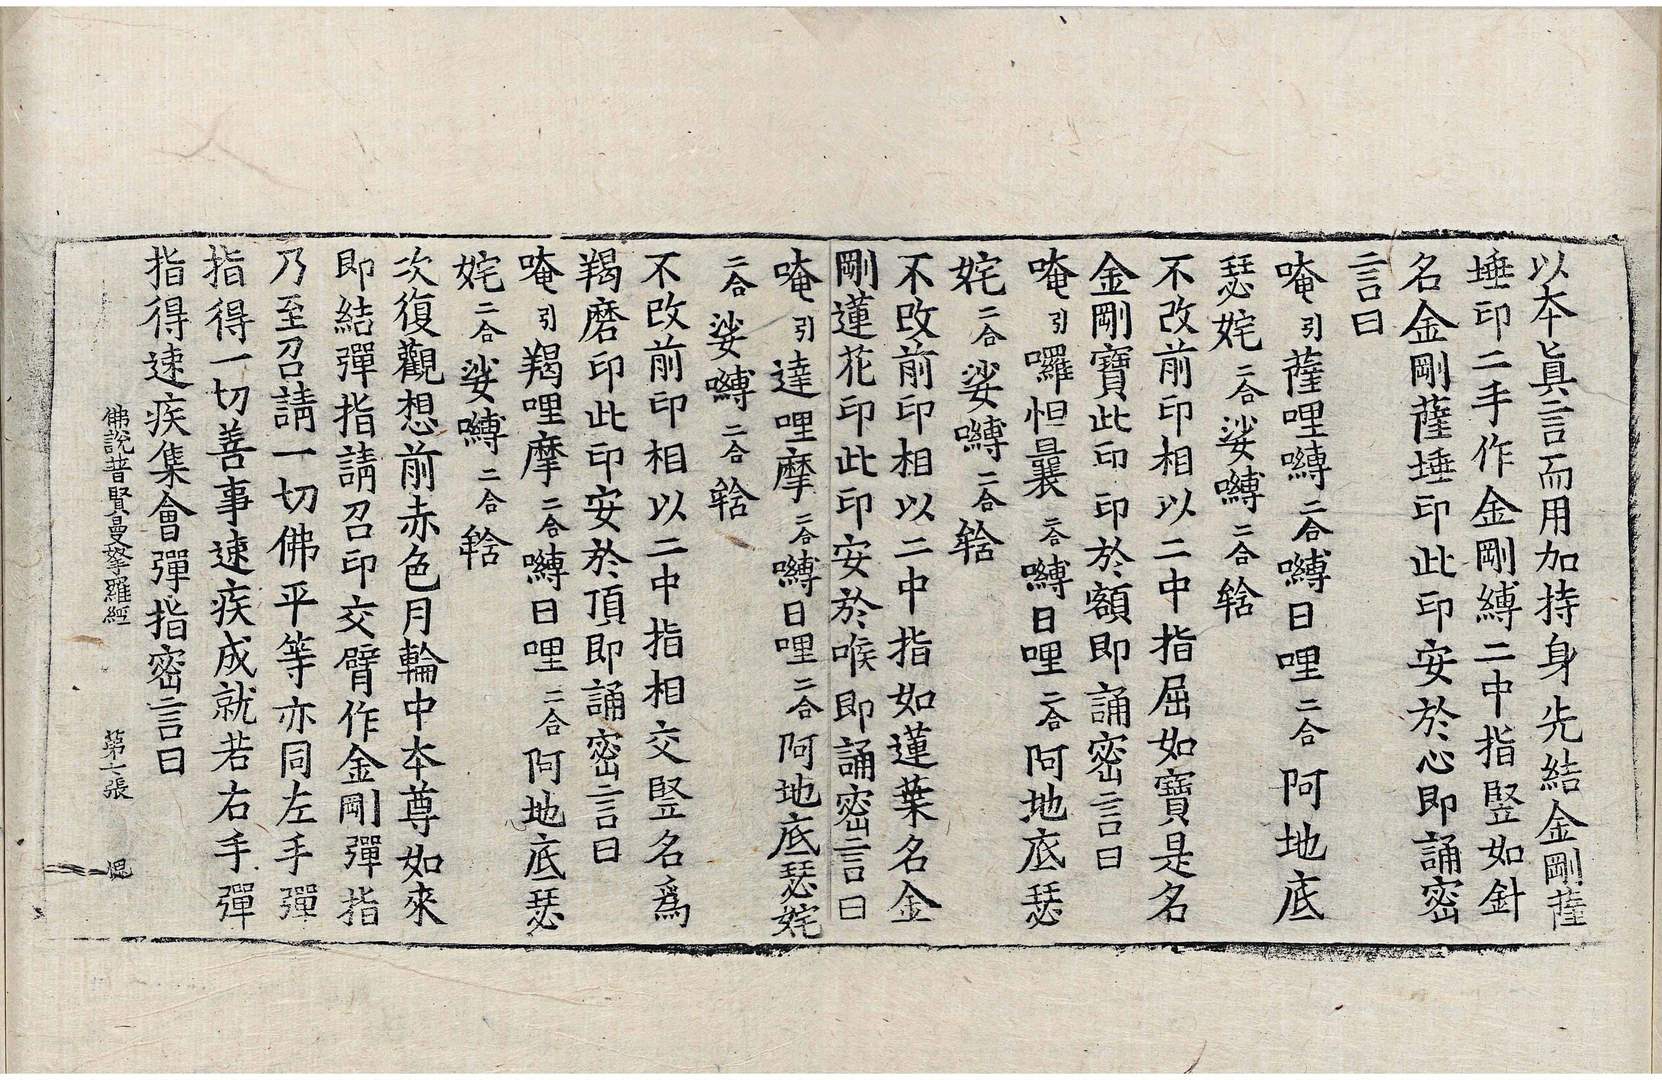 以本眞言而用加持身先結金剛薩
埵印二手作金剛縛二中指竪如針
名金剛薩埵印此印安於心即誦密
言曰
唵引薩哩嚩二合嚩日哩二合阿地底
瑟姹二合娑嚩二合𤚥
不改前印相以二中指屈如寶是名
金剛寶此印印於額即誦密言曰
唵引囉怛曩二合嚩日哩二合阿地底瑟
姹二合娑嚩二合𤚥
不改前印相以二中指如蓮葉名金
剛蓮花印此印安於喉即誦密言曰
唵引達哩摩二合嚩日哩二合阿地底瑟姹
二合娑嚩二合𤚥
不改前印相以二中指相交竪名爲
羯磨印此印安於頂即誦密言曰
唵引羯哩摩二合嚩日哩二合阿地底瑟
姹二合娑嚩二合𤚥
次復觀想前赤色月輪中本尊如來
即結彈指請召印交臂作金剛彈指
乃至召請一切佛平等亦同左手彈
指得一切善事速疾成就若右手彈
指得速疾集會彈指密言曰
佛說普賢曼拏羅經 第七張